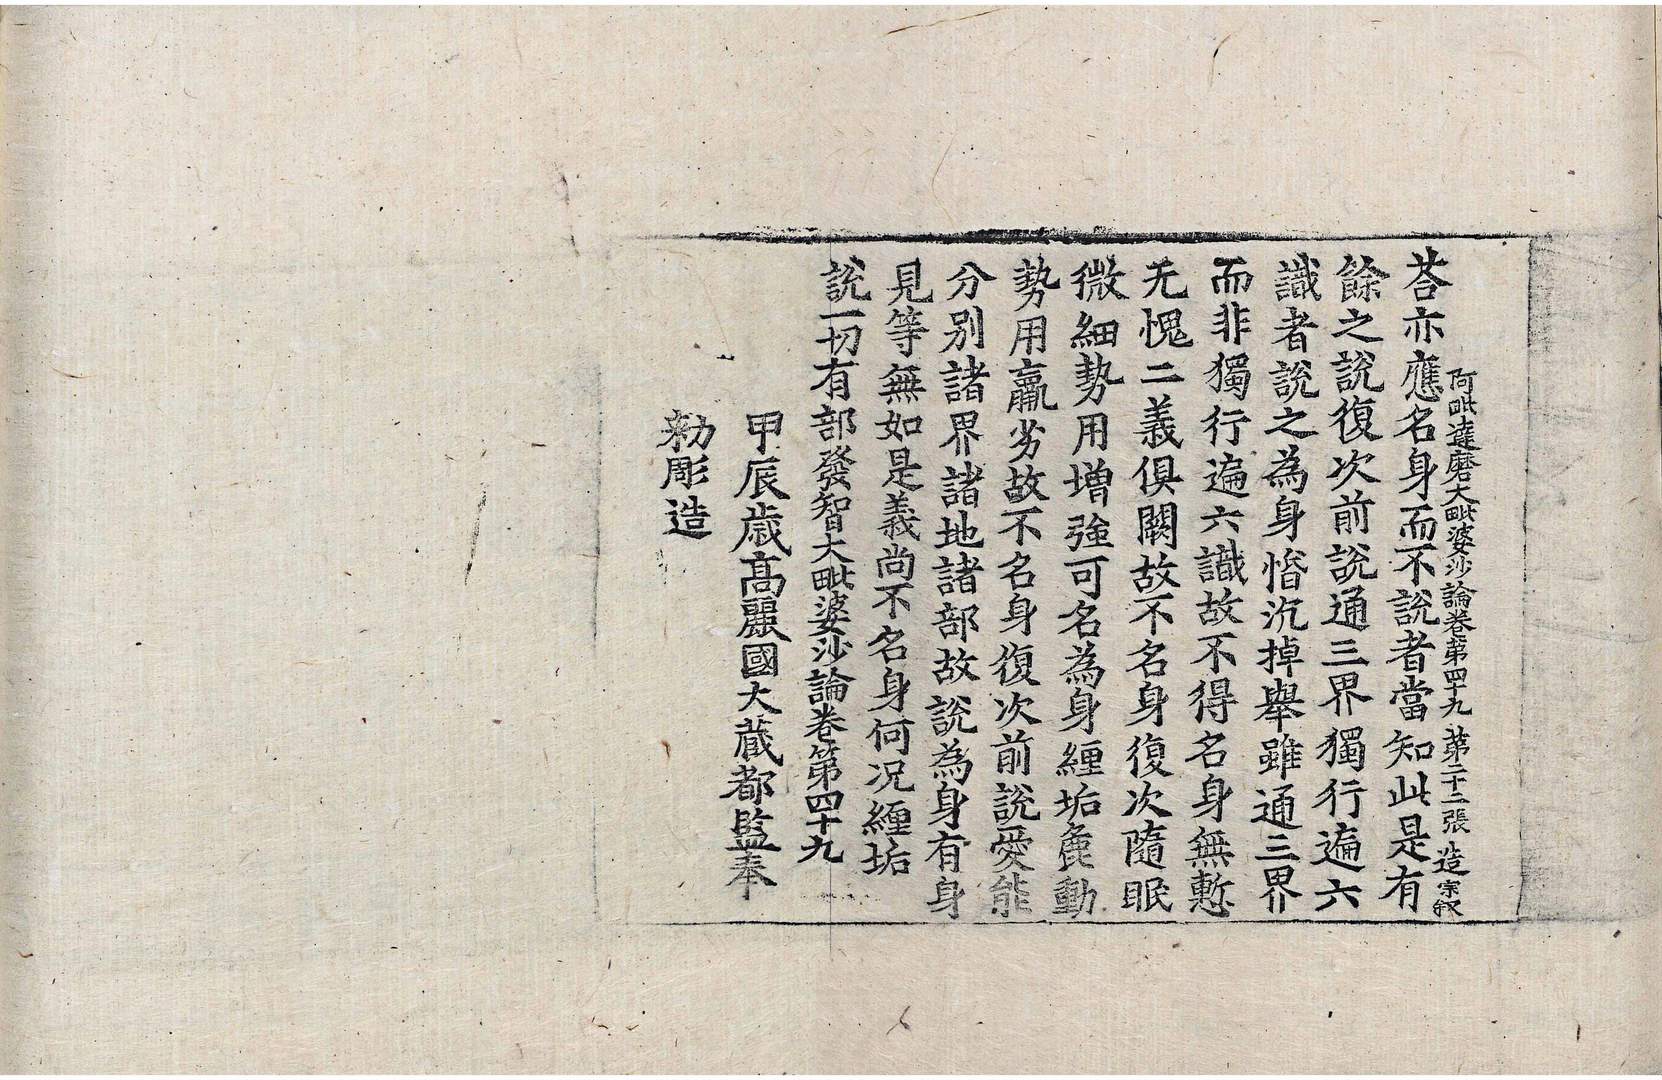 阿毗達磨大毗婆沙論卷第四十九 第二十二張 造 宗叙
荅亦應名身而不說者當知此是有
餘之說復次前說通三界獨行遍六
識者說之為身惛沉掉舉雖通三界
而非獨行遍六識故不得名身無慙
无愧二義俱闕故不名身復次隨眠
微細勢用增強可名為身纏垢麁動
勢用羸劣故不名身復次前說愛能
分別諸界諸地諸部故說為身有身
見等無如是義尚不名身何况纏垢
說一切有部發智大毗婆沙論卷第四十九
甲辰歳高麗國大藏都監奉
勑彫造